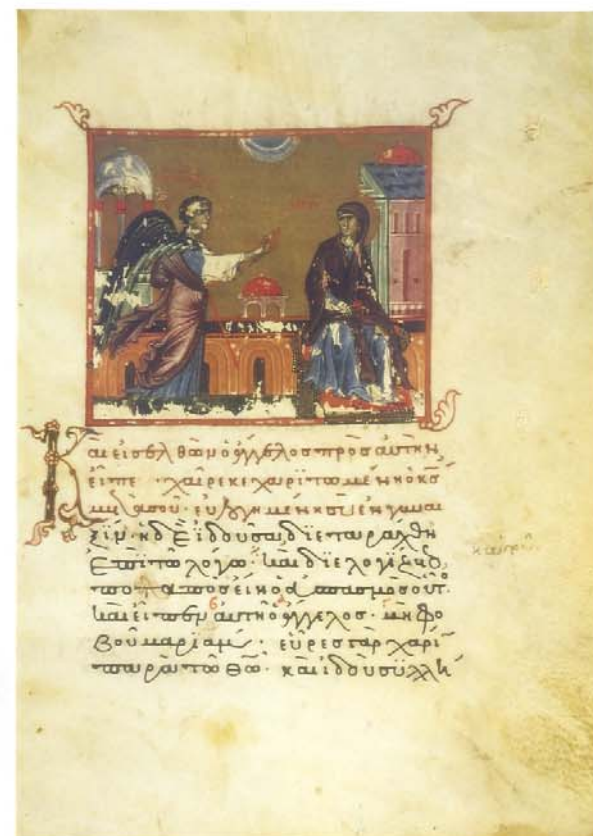 Καὶ εἰσελθὼν ὁ ἄγγελος πρὸς αὐτὴν
εἶπε · χαῖρε κεχαριτωμένη ὁ κς
μετὰ σοῦ · εὐλογημένη σὺ ἐν γυναι
ξίν · ἡ δὲ ἰδοῦσα διεταράχθη
ἐπὶ τῷ λόγῳ · καὶ διελογίζετο
ποταπὸς εἴη ὁ ἀσπασμὸς οὗτ
καὶ εἶπεν αὐτῇ ὁ ἄγγελος · μὴ φο
βοῦ μαριάμ · εὗρες γὰρ χάρι
παρὰ τῷ θῶ · καὶ ἰδοὺ συλλή